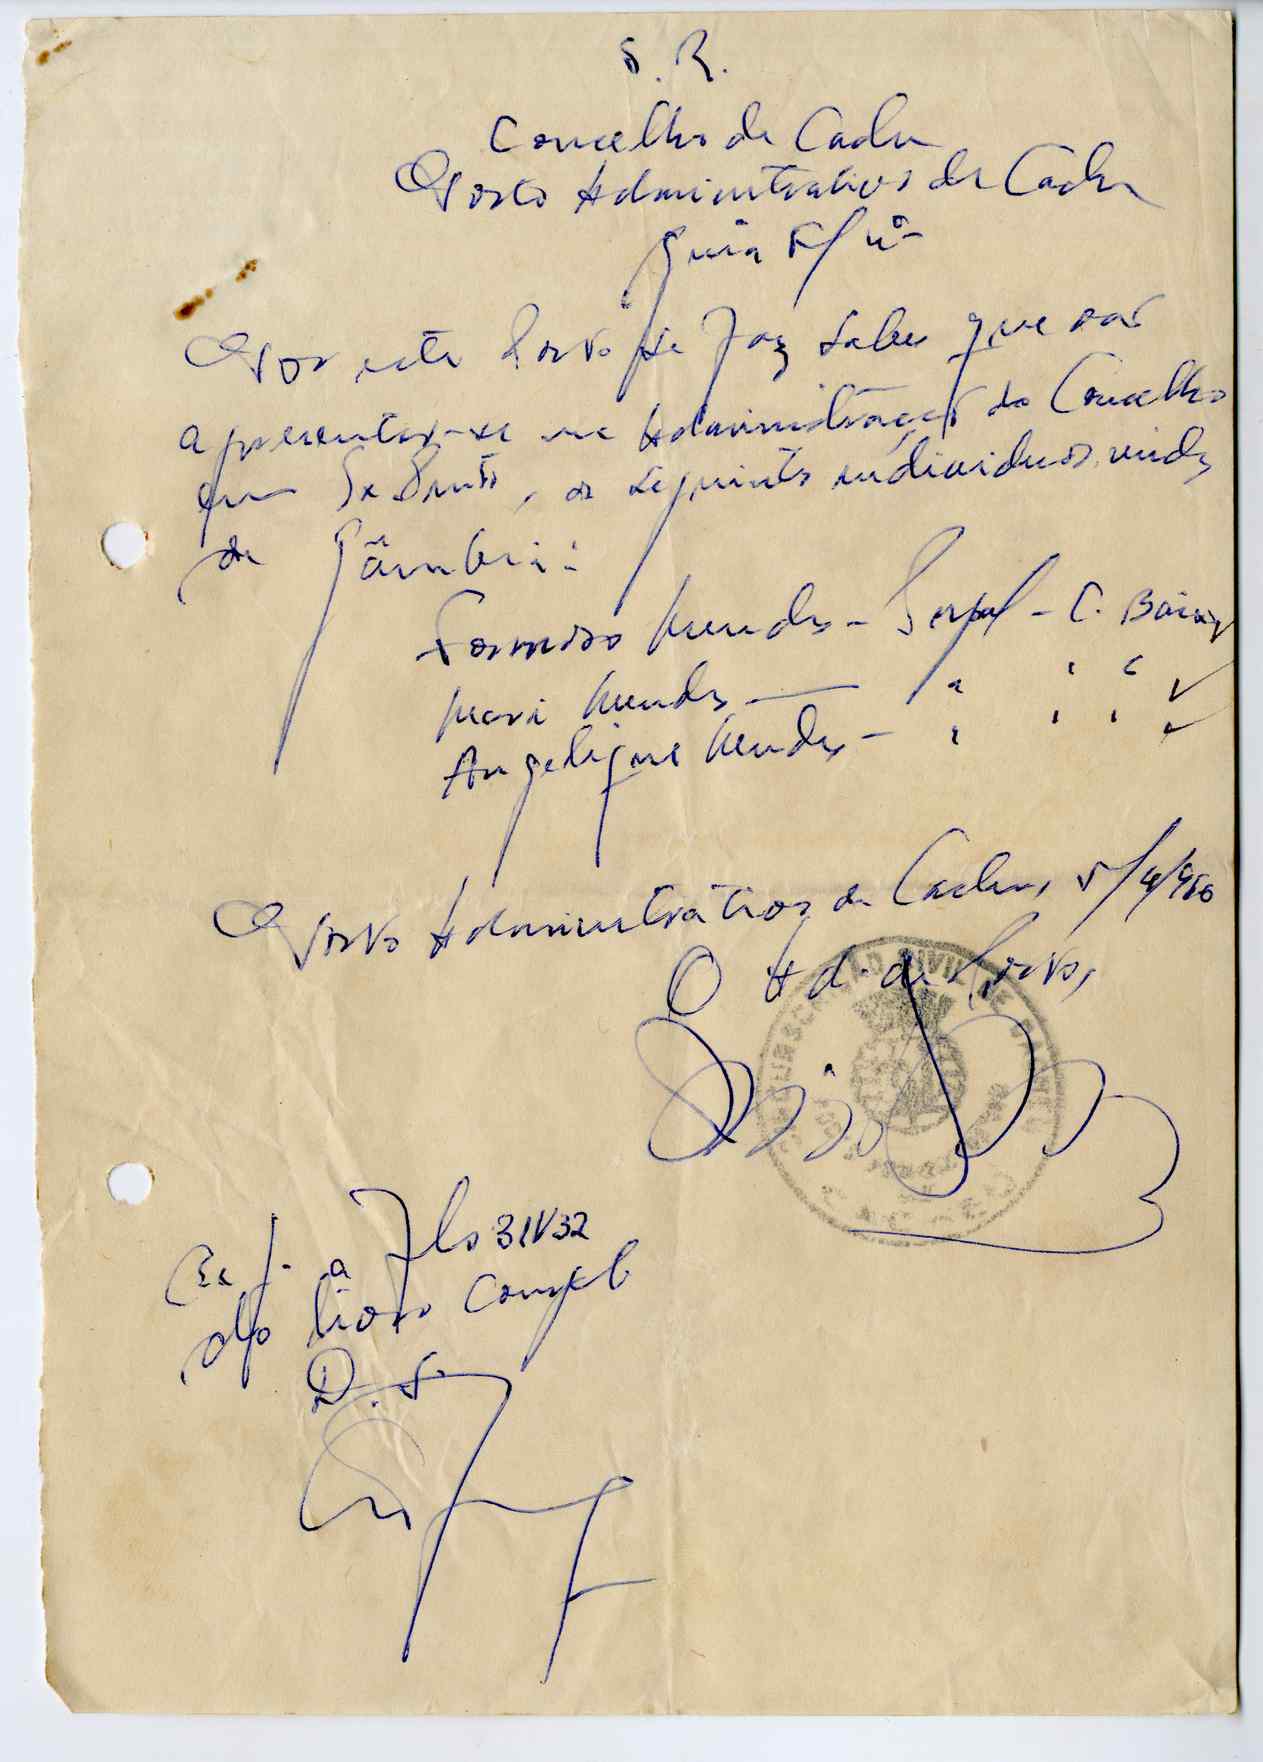 S. R.
Concelho de Cacheu
Posto Administrativo de Cacheu
Guia s/ nº
Por este Posto se faz saber que vão
apresentar-se na Administração do Concelho
em os seguintes individuos, vindos
de Gâmbia:
Mendes - - C. Baixo
Mari Mendes — " " "
Angelique Mendes - " " "
Posto Administrativo de Cacheu, 5/4/960
O Ad. de Posto,
a fls 31V32
do Livro Compet
D. S.